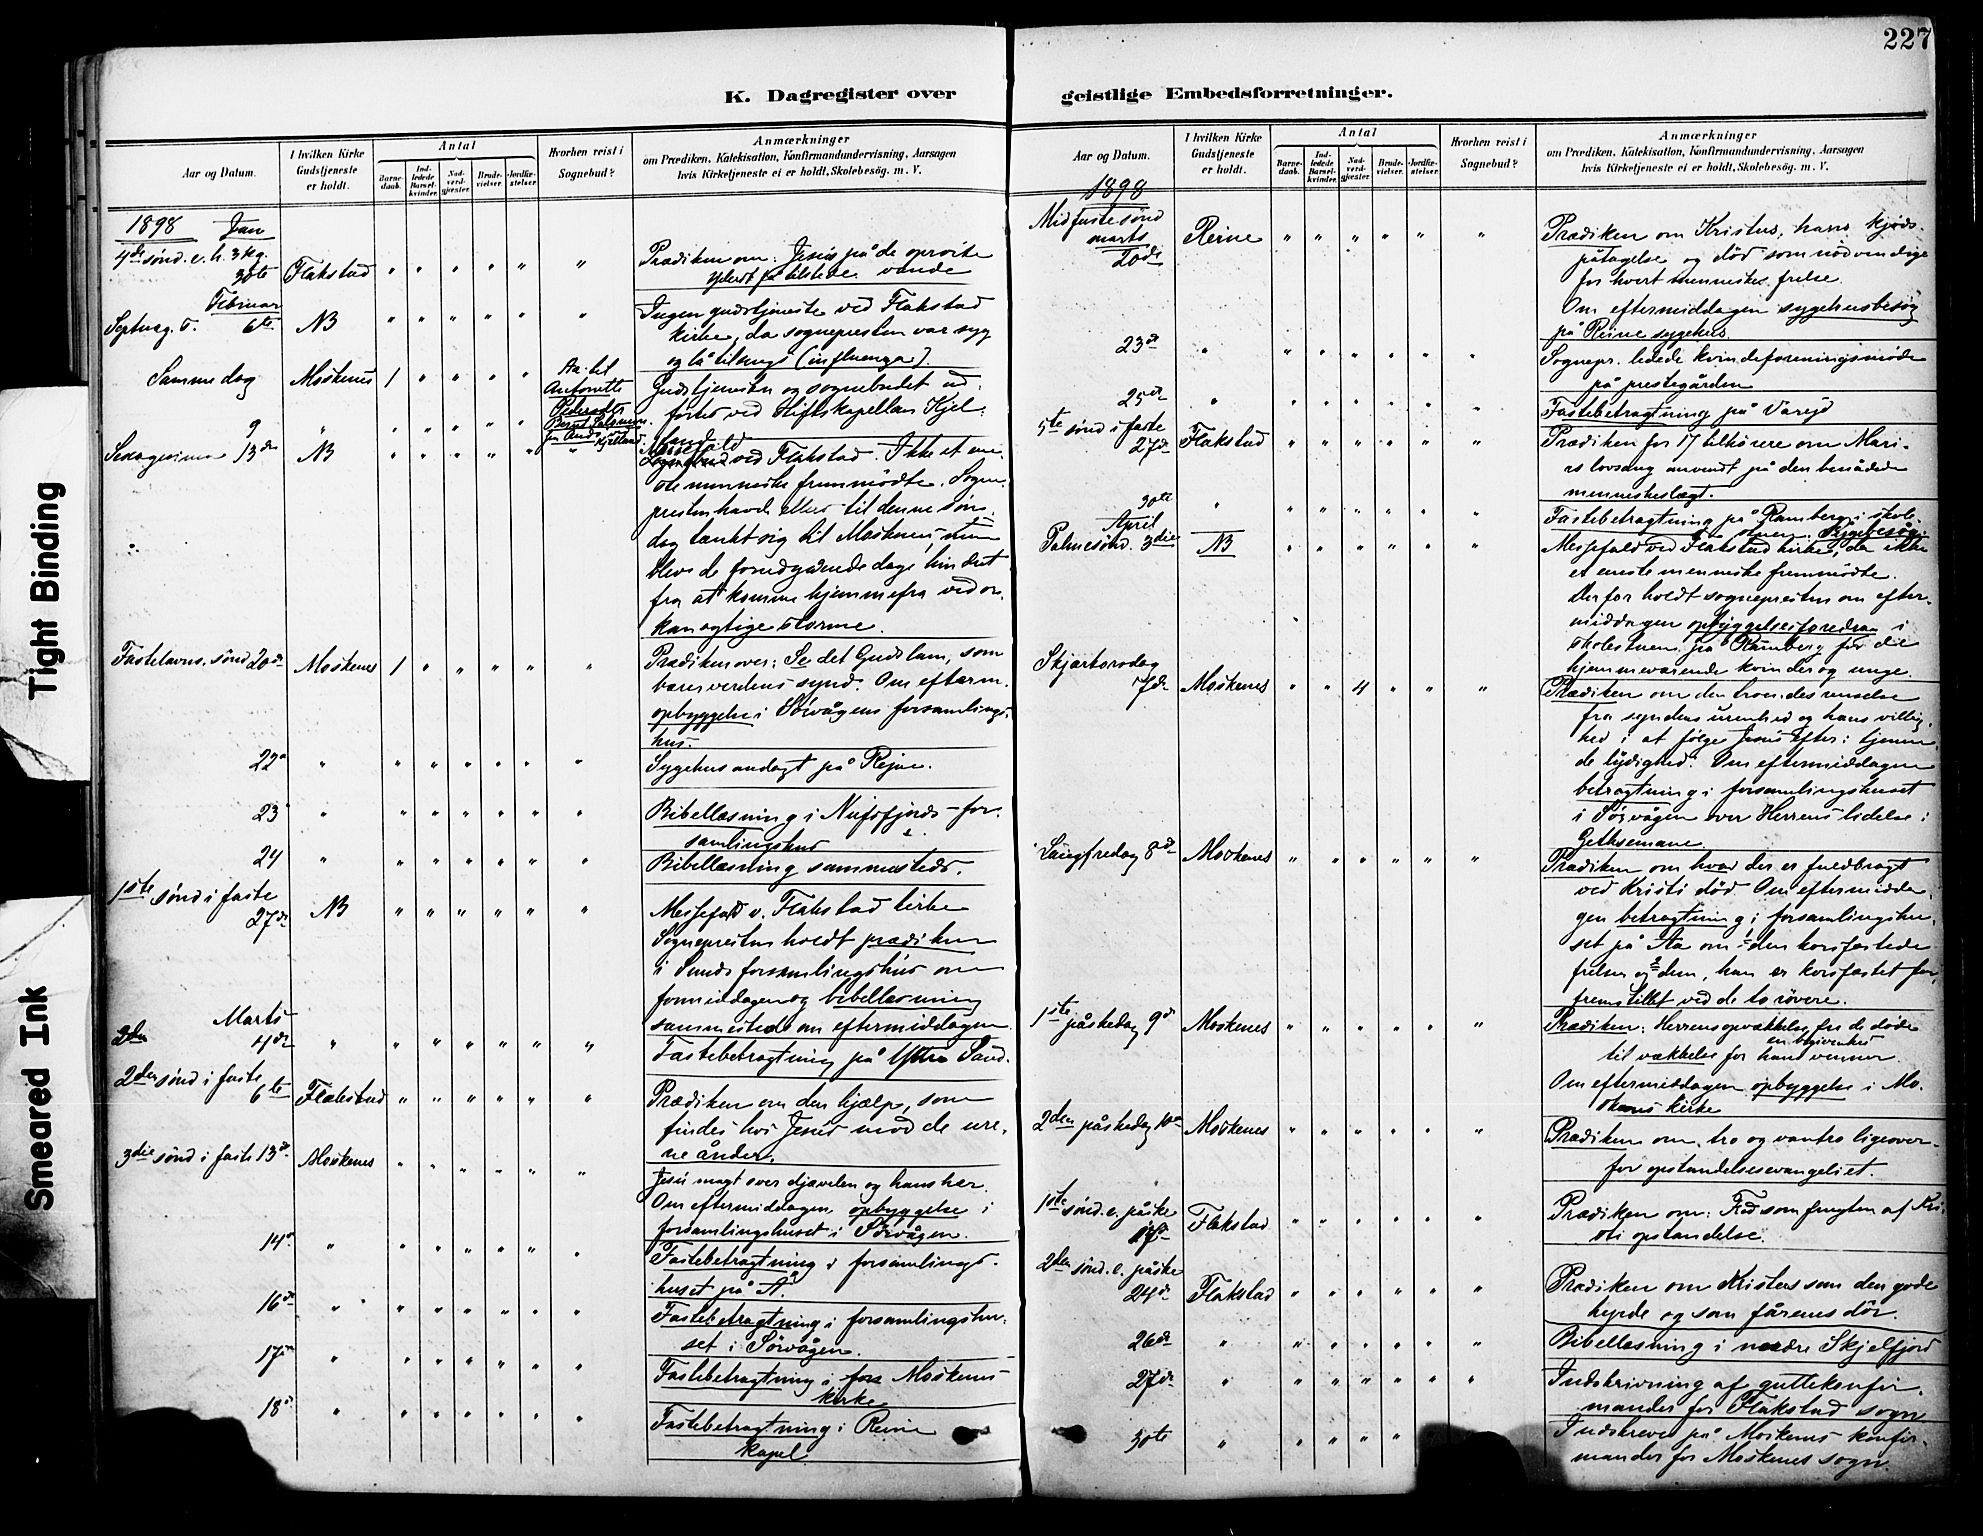 227
K. Dagregister over
geistlige Embedsforretninger.
Aar og Datum.
I hvilken Kirke
Gudstjeneste
er holdt.
Antal
Barne-
daab.
Ind-
ledede
Barsel-
kvinder.
Nad-
verd-
gjæster.
Brude-
vielser.
Jordfæ-
stelser.
Hvorhen reist i
Sognebud?
Anmærkninger
om Prædiken, Katekisation, Konfirmandundervisning, Aarsagen
hvis Kirketjeneste ei er holdt, Skolebesøg. m. V.
1898 Jan
4de sønd. e. h. 3 kg.
30te Flakstad " " " " " "
Prædiken om: Jesus på de oprørte
vande
Februar
Septuag. s. 6te NB " " " " " "
Ingen gudstjeneste ved Flakstad
kirke, da sognepresten var syg
og lå tilsengs (influenza).
Samme dag Moskenes 1 " " " "
Aa. til
Antonette
Pedersdtr
Gudstjenesten og sognebudet ud-
førtes ved stiftskapellan Kjel-
land
9 " " " " " "
Sexagesima 13de NB " " " " " "
Messefald
ved Flakstad. Ikke et ene-
ste menneske fremmødte. Sogne-
presten havde ellers til denne søn-
dag tænkt sig til Moskenes, men
blev de foregående dage hindret
fra at komme hjemmefra ved or-
kanagtige storme.
Fastelavns. sønd 20de Moskenes 1 " " " " "
Prædiken over: Se det Guds lam, som
bærer verdens synd. Om efterm.
opbyggelse i Sørvågens forsamlings-
hus.
22de " " " " " " "
Sygehusandagt på Rejne.
23 " " " " " " "
Bibellæsning i Nufsfjords for-
samlingshus
24 " " " " " " "
Bibellæsning sammesteds.
1ste sønd i faste
27de NB " " " " " "
Messefald v. Flakstad kirke
Sognepresten holdt prædiken
i Sunds forsamlingshus om
formiddagen og bibellæsning
sammesteds om eftermiddagen.
Marts
4de " " " " " " "
Fastebetragtning på Yttre Sand.
2den sønd i faste
6te Flakstad " " " " " "
Prædiken om den hjælp, som
findes hos Jesus mod de ure-
ne ånder.
3die sønd i faste 13de Moskenes " " " " " "
Jesu magt over djævelen og hans hær.
Om eftermiddagen opbyggelse i
forsamlingshuset i Sørvågen.
14de " " " " " " "
Fastebetragtning i forsamlings-
huset på Å.
16de " " " " " " "
Fastebetragtning i forsamlingshu-
set i Sørvågen.
17de " " " " " " "
Fastebetragtning i Moskenes
kirke
18de " " " " " " "
Fastebetragtning i Reine
kapel
Aar og Datum.
I hvilken Kirke
Gudstjeneste
er holdt.
Antal
Barne-
daab.
Ind-
ledede
Barsel-
kvinder.
Nad-
verd-
gjæster.
Brude-
vielser.
Jordfæ-
stelser.
Hvorhen reist i
Sognebud?
Anmærkninger
om Prædiken, Katekisation, Konfirmandundervisning, Aarsagen
hvis Kirketjeneste ei er holdt, Skolebesøg. m. V.
1898
Midfastesønd
marts
20de Reine " " " " " "
Prædiken om Kristus, hans kjøds-
påtagelse og død som nødvendige
for hvert menneskes frelse.
Om eftermiddagen sygehusbesøg
på Reine sygehus.
23de " " " " " " "
Sognepr. ledede kvindeforeningsmøde
på prestegården
25de " " " " " " "
Fastebetragtning på Vareid
5te sønd i faste
27de Flakstad " " " " " "
Prædiken for 17 tilhørere om Mari-
as lovsang anvendt på den benådede
menneskeslægt.
30te " " " " " " "
Fastebetragtning på Ramberg i skole-
stuen. Sygebesøg.
April
Palmesønd. 3die NB " " " " " "
Messefald ved Flakstad kirke, da ikke
et eneste menneske fremmødte.
Derfor holdt sognepresten om efter-
middagen opbyggelsesforedrag i
skolestuen på Ramberg for de
hjemmeværende kvinder og unge.
Skjærtorsdag
7de Moskenes " " 4 " " "
Prædiken om den troendes renselse
fra syndens urenhed og hans villig-
hed i at følge Jesus efter i tjenen-
de lydighed. Om eftermiddagen
betragtning i forsamlingshuset
i Sørvågen over Herrens lidelse i
Gethsemane.
Langfredag 8de Moskenes " " " " " "
Prædiken om hvad der er fuldbragt
ved Kristi død. Om eftermidda-
gen betragtning i forsamlingshu-
set på Aa om 1 den korsfæstede
frelser og 2 dem, han er korsfæstet for,
fremstillet ved de to røvere.
1ste påskedag 9de Moskenes " " " " " "
Prædiken: Herrens opvækkelse fra de døde
en begivenhed
til vækkelse for hans venner
Om eftermiddagen opbyggelse i Mo-
skenes kirke
2den påskedag 10de Moskenes " " " " " "
Prædiken om tro og vantro ligeover-
for opstandelsesevangeliet.
1ste sønd. e. påske
17de Flakstad " " " " " "
Prædiken om: Fred som frugten af Kri-
sti opstandelse.
2den sønd. e. påske
24de Flakstad " " " " " "
Prædiken om Kristus som den gode
hyrde og som fårenes dør.
26de " " " " " " "
Bibellæsning i nedre Skjelfjord
27de " " " " " " "
Indskrivning af guttekonfir-
mander for Flakstad sogn
30te " " " " " "
Indskreves på Moskenes konfir-
mander for Moskenes sogn.
Tight Binding
Smeared Ink